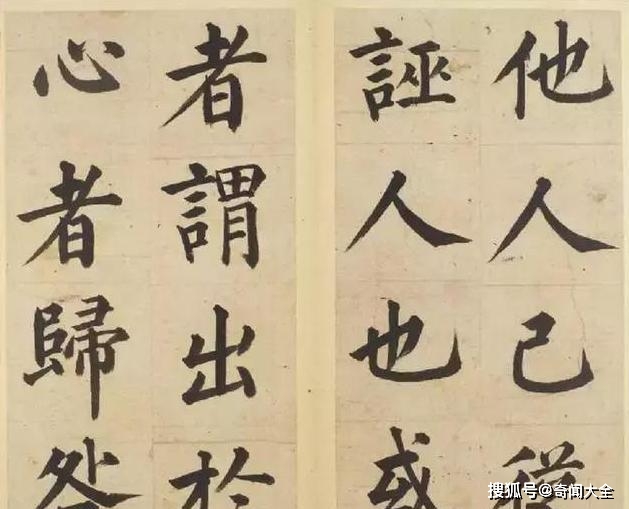 他人己從
誣人也或
者謂出於
心者歸咎
搜狐号@奇闻大全